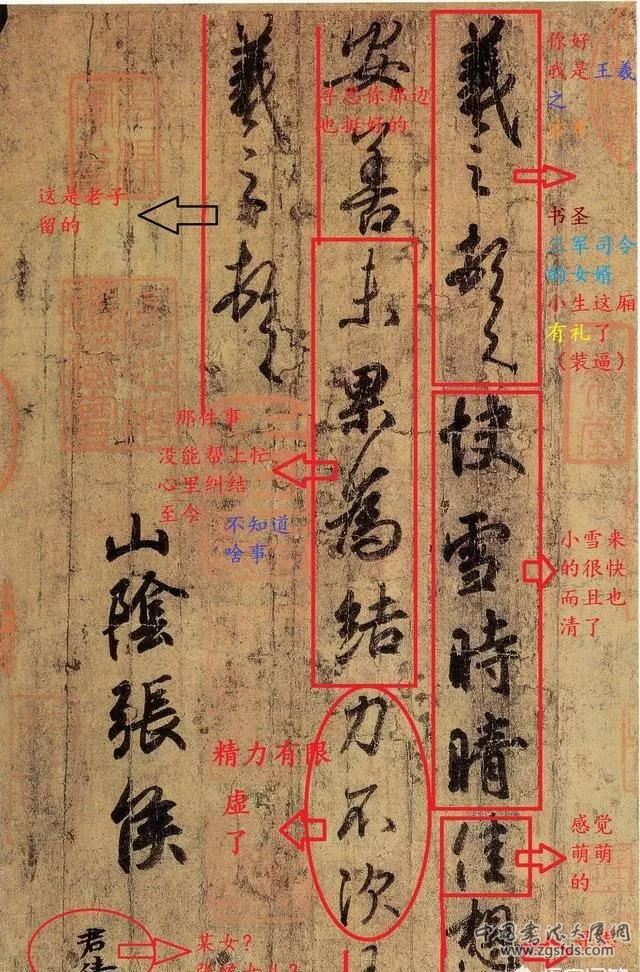 羲之頓首
快雪時晴
佳想
安善
未果為結
力不次
羲之頓首
山陰張侯
君倩
你好
我是王羲
之
书圣
三军司令
的女婿
小生这厢
有礼了
（装逼）
小雪来
的很快
而且也
清了
感觉
萌萌
的
寻思你那边
也挺好的
这是老子
留的
那件事
没能帮上忙
心里纠结
至今
不知道
啥事
精力有限
虚
了
某女？
中国书法大厦网
www.zgsfds.com